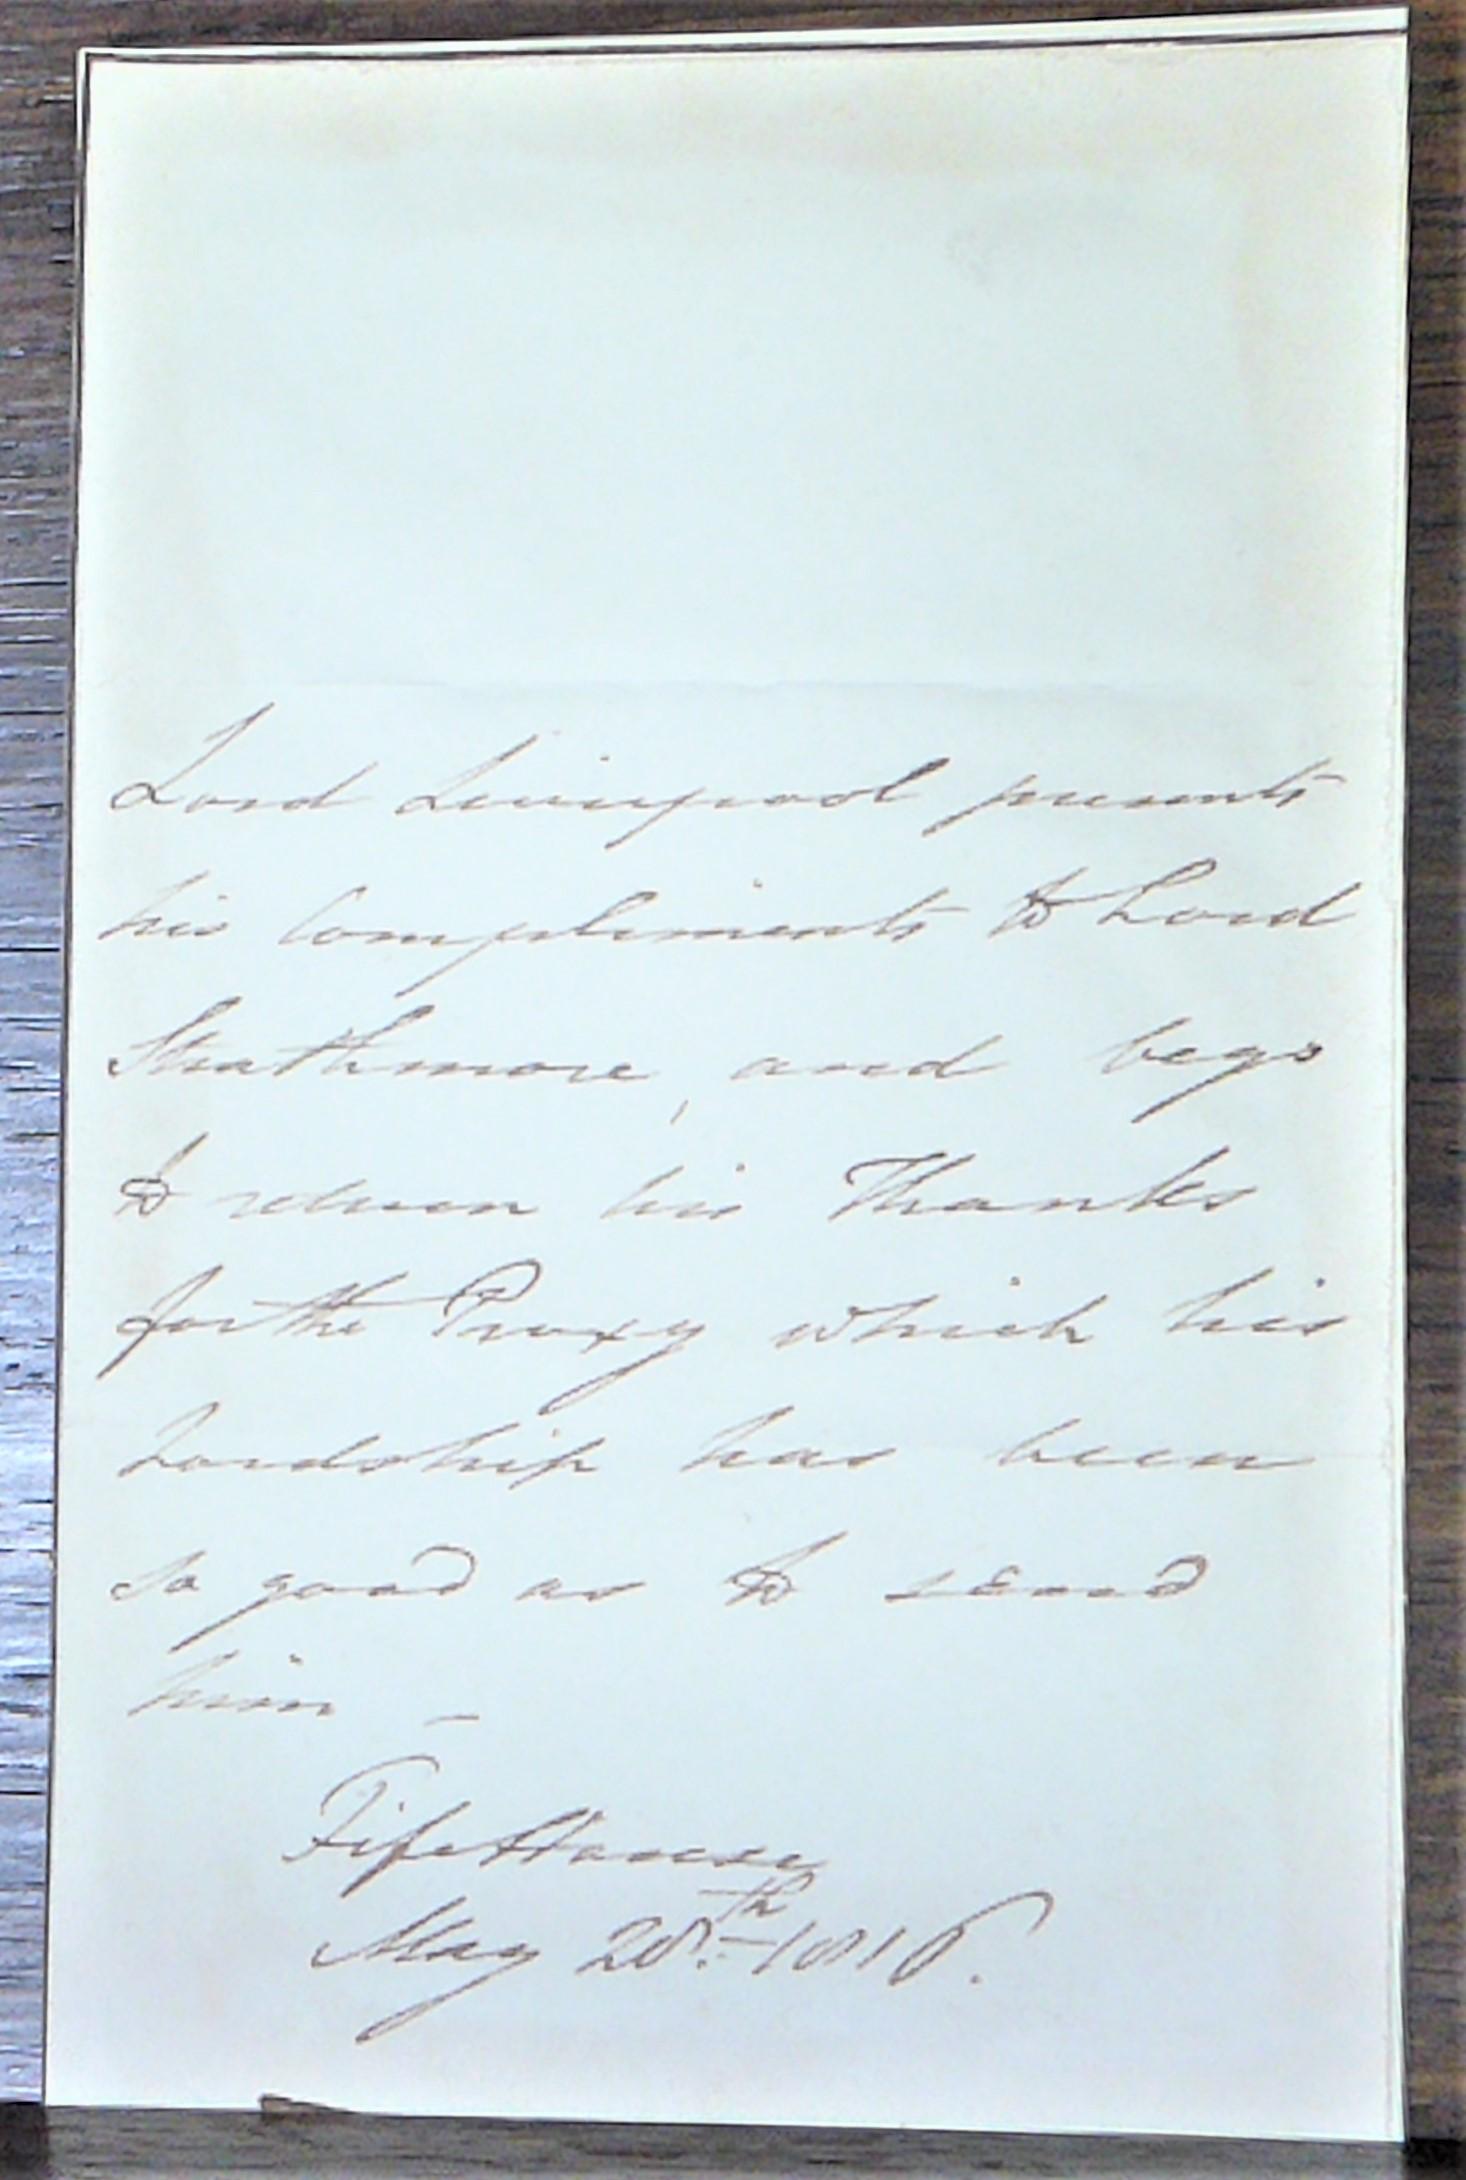 Lord Liverpool presents
his Compliments to Lord
Strathmore, and begs
to return his Thanks
for the Proxy which his
Lordship has been
so good as to send
him –
Fife House
May 20.th 1816.